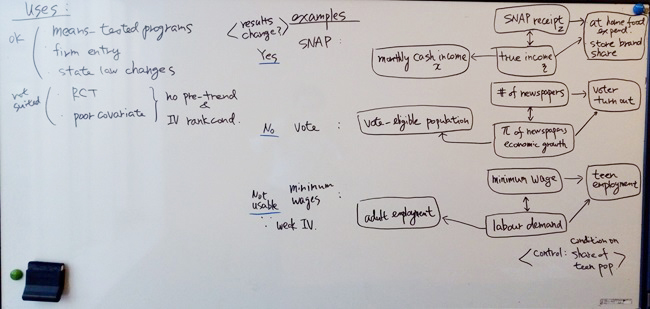 Uses:
ok
means-tested programs
firm entry
state law changes
not suited
RCT
poor covariate
no pre-trend
&
IV rank cond.
results change?
examples
Yes
SNAP:
monthly cash income
x
SNAP receipt
z
true income
η
at home food expend.
store brand share
No
Vote :
vote-eligible population
# of newspapers
π of newspapers
economic growth
voter turn out
Not usable
minimum wages :
∵ weak IV.
adult employment
minimum wage
labour demand
teen employment
control:
condition on
share of
teen pop